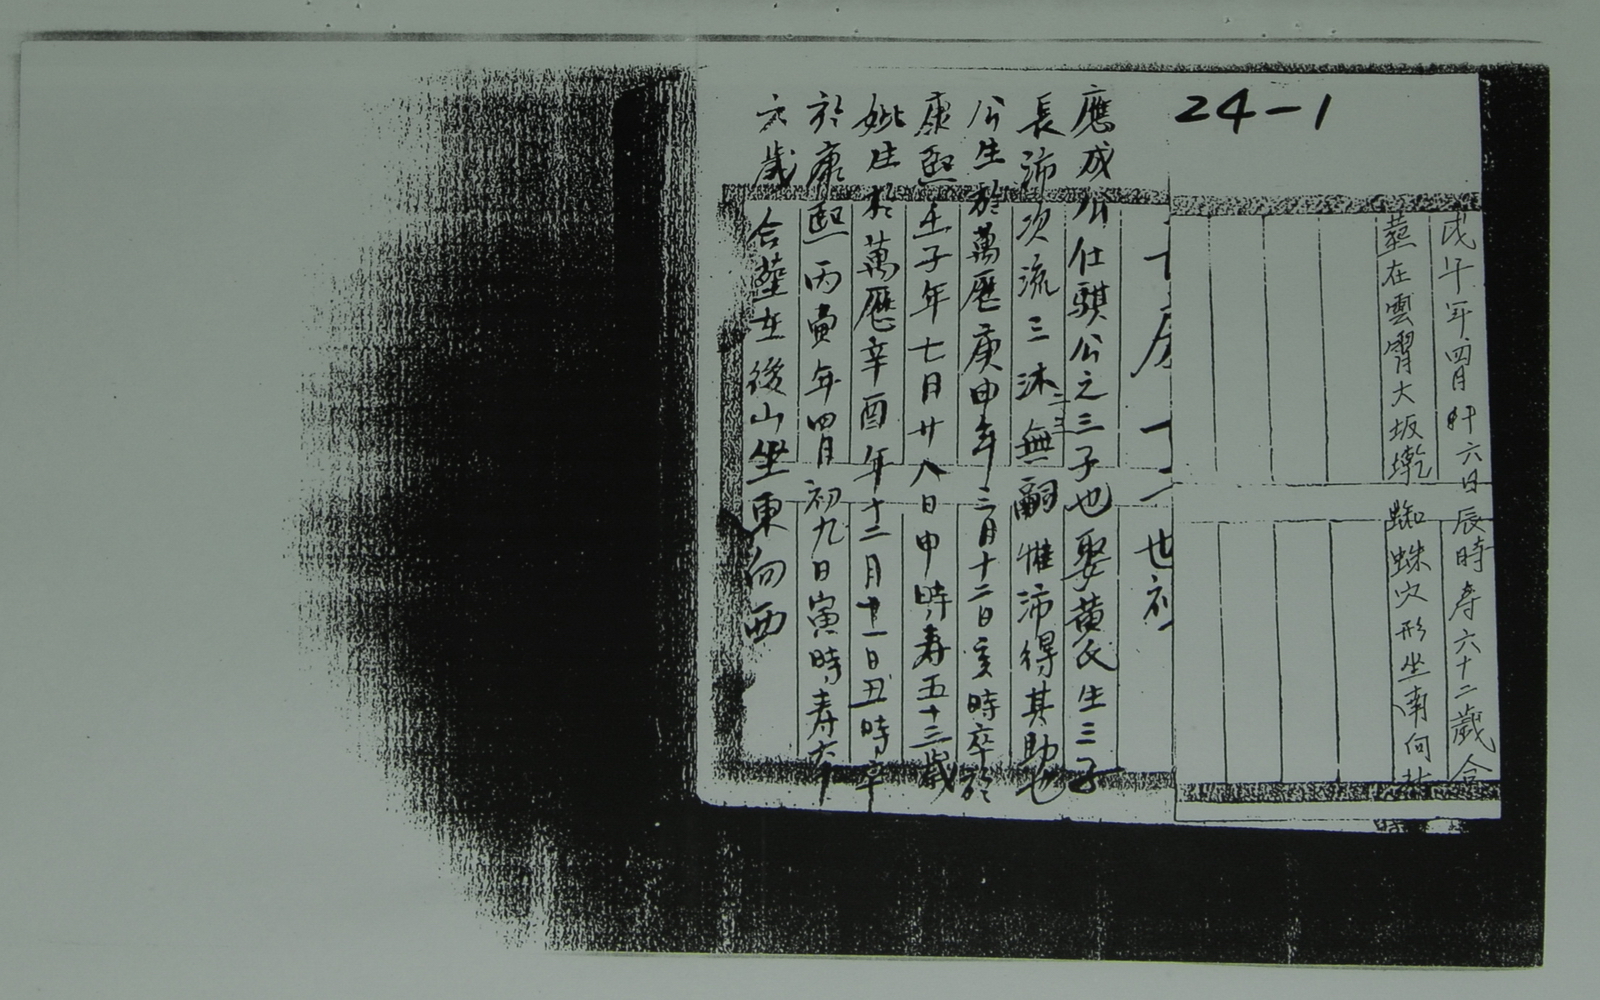 24-1
戊午年四月廿六日辰時寿六十二歲合
塟在雲霄大坂墘 蜘蛛穴形坐南向北
十房十二世祖
應成公仕騏公之三子也娶黃氏生三子
長沛次流三沐無嗣惟沛得其助也
二三
公生於萬歷庚申年三月十二日亥時卒於
康熙壬子年七月廿八日申時寿五十三歲
妣生於萬歷辛酉年十二月十一日丑時卒
於康熙丙寅年四月初九日寅時寿六十
六歲 合塟在後山坐東向西